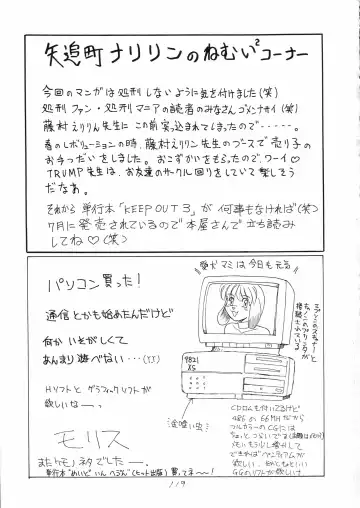 矢追町ナリリンのねむい²コーナー
今回のマンガは処刑しないように気を付けました(笑)
処刑ファン・処刑マニアの読者のみなさんゴメンナサイ(笑)
藤村えりりん先生にこの前突っ込まれてしまったので‥‥‥。
春のレボリューションの時、藤村えりりん先生のブースで売り子の
お手つだいをしました。おこずかいをもらったので、ワーイ♡
TRUMP先生は、お友達のサークル回りをしていて楽しそう
だなぁ。
それから単行本「KEEP OUT 3」が何事もなければ(笑)
7月に発売されているので本屋さんで立ち読み
してね♡(笑)
パソコン買った!
通信とかも始めたんだけど
何かいそがしくて
あんまり遊べない‥‥(T.T)
Hソフトとグラフィックソフトが
欲しいなー、
モリス
またケモノネタでした—.
単行本"めいどいんへぶん"(ヒット出版)買ってネ〜!
愛犬マミは今日も元気
エプソンのスキャナーと
接続されている
9821
XS
(金喰い虫)
CDROMも付いてるけど
486の66MHzだから
フルカラーのCGには
ちょっとつらいですね
メモリももう少し増やして
できればペンティアムが
欲しい。
GGのソフトが欲しいけど.
119